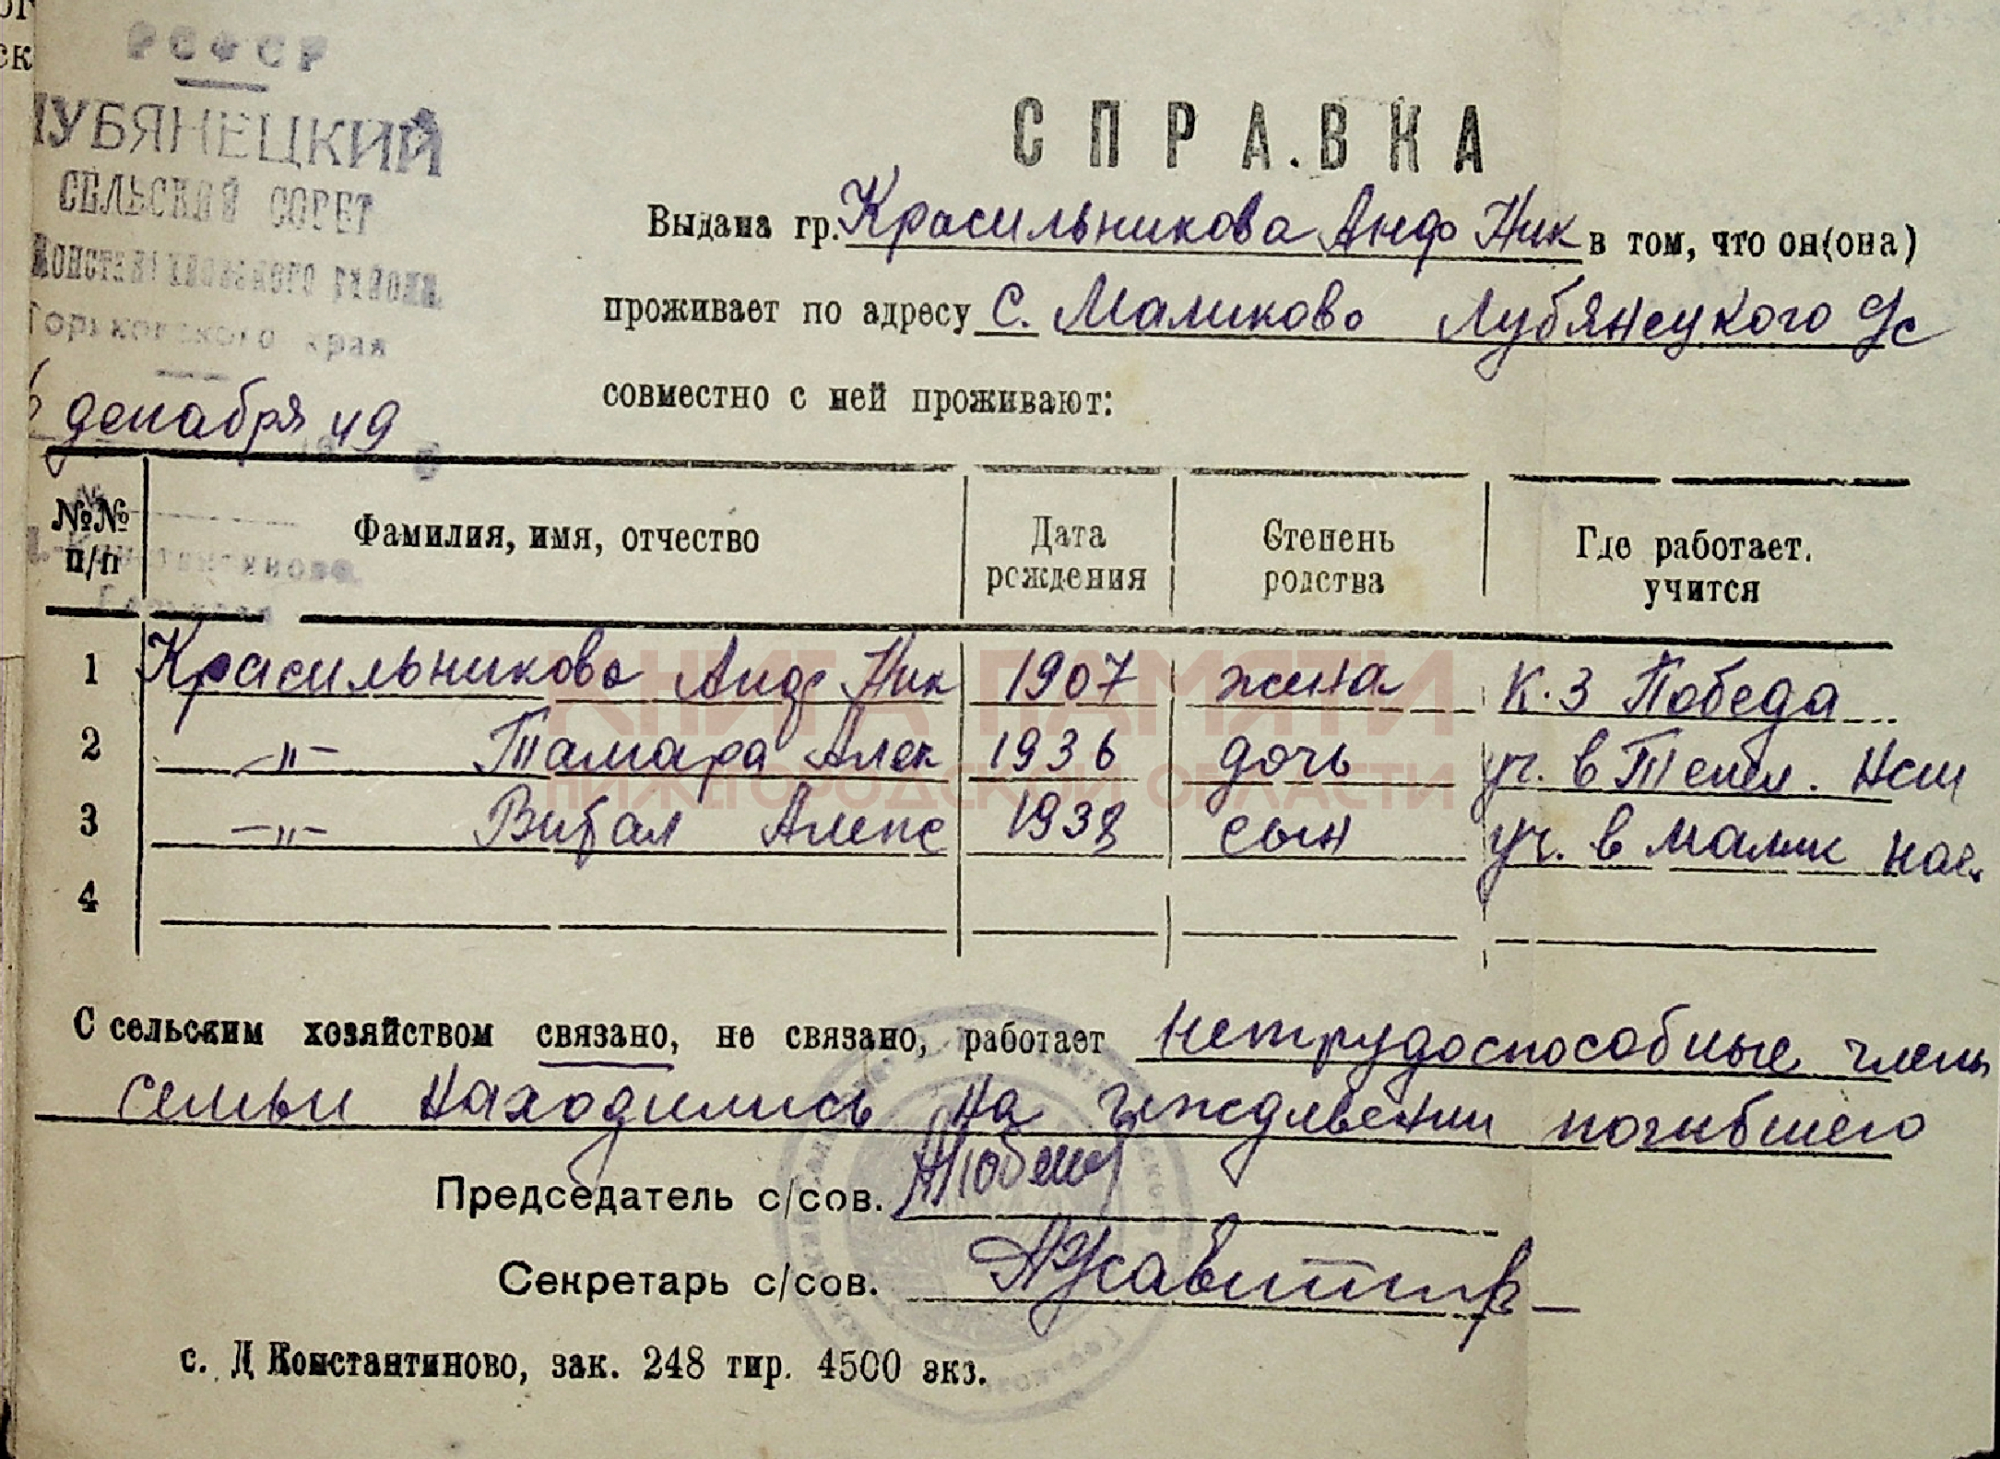 РСФСР
ЛУБЯНЕЦКИЙ
СЕЛЬСКИЙ СОВЕТ
Константиновского района
Горьковского края
6 декабря 49
СПРАВКА
Выдана гр. Красильникова Анф Ник в том, что он(она)
проживает по адресу С. Маликово Лубянецкого с/с
совместно с ней проживают:
№№ п/п Фамилия, имя, отчество Дата рождения Степень родства Где работает, учится
1 Красильникова Анф Ник 1907 жена К.З Победа
2 –„– Тамара Алек 1936 дочь уч. в Темл. Нсш
3 –„– Витал Алекс 1938 сын уч. в Малик нач.
4
КНИГА ПАМЯТИ
НИЖЕГОРОДСКОЙ ОБЛАСТИ
С сельским хозяйством связано, не связано, работает нетрудоспособные члены
семьи находились на иждивении погибшего
Председатель с/сов.
Секретарь с/сов.
с. Д Константиново, зак. 248 тир. 4500 экз.